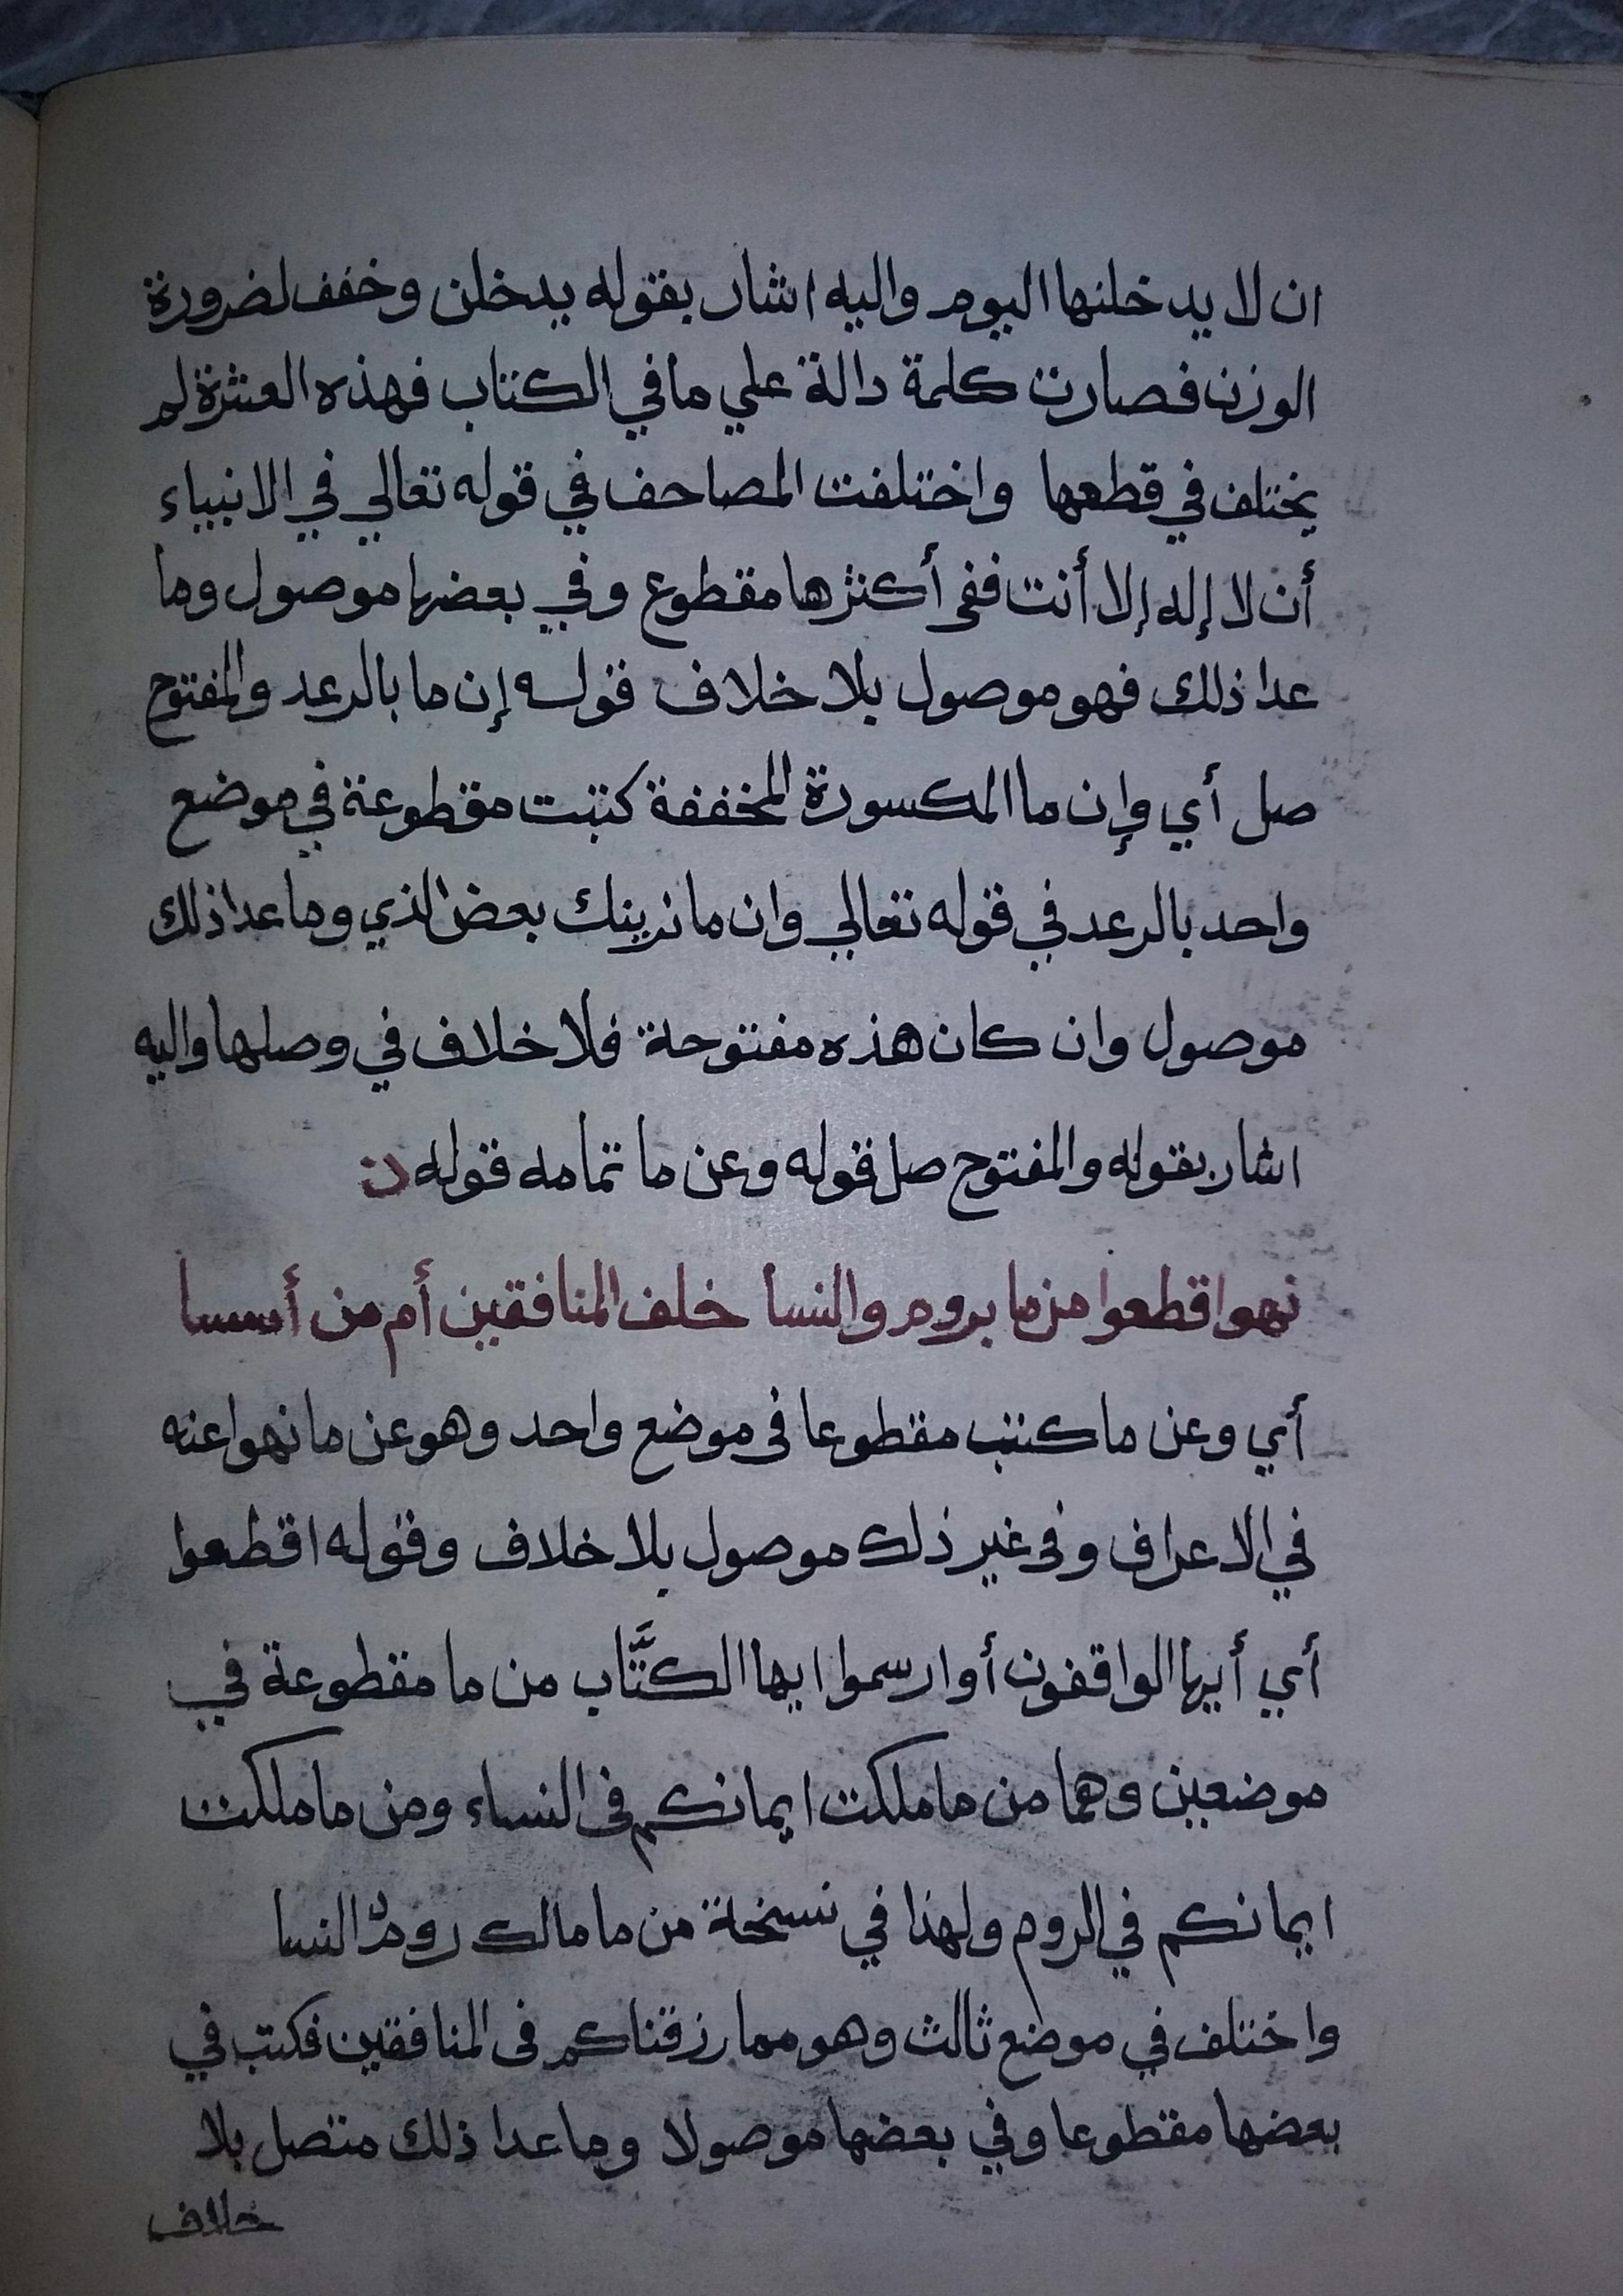 ان لا يدخلنها اليوم واليه اشار بقوله يدخلن وخفف لضرورة
الوزن فصارت كلمة دالة علي ما في الكتاب فهذه العشرة لم
يختلف في قطعها واختلفت المصاحف في قوله تعالي في الانبياء
أن لا إله إلا أنت ففى أكثرها مقطوع وفي بعضها موصول وما
عدا ذلك فهو موصول بلا خلاف قوله إن ما بالرعد والمفتوح
صل أي وإن ما المكسورة المخففة كتبت مقطوعة في موضع
واحد بالرعد في قوله تعالي وان ما نرينك بعض الذي وما عدا ذلك
موصول وان كان هذه مفتوحة فلا خلاف في وصلها واليه
اشار بقوله والمفتوح صل قوله وعن ما تمامه قوله ن
نهوا اقطعوا من ما بروم والنسا خلف المنافقين أم من أسسا
أي وعن ما كتب مقطوعا فى موضع واحد وهو عن ما نهوا عنه
في الاعراف وفى غير ذلك موصول بلا خلاف وقوله اقطعوا
أي أيها الواقفون أو ارسموا ايها الكتَّاب من ما مقطوعة في
موضعين وهما من ما ملكت ايمانكم فى النساء ومن ما ملكت
ايمانكم في الروم ولهذا في نسخة من ما مالك روم النسا
واختلف في موضع ثالث وهو مما رزقناكم فى المنافقين فكتب في
بعضها مقطوعا وفي بعضها موصولا وما عدا ذلك متصل بلا
خلاف